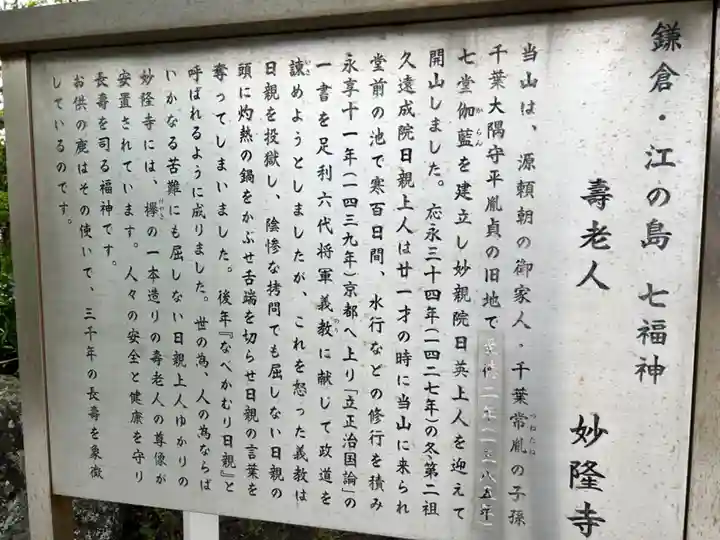 鎌倉・江の島 七福神
壽老人 妙隆寺
当山は、源頼朝の御家人・千葉常胤の子孫
つねたね
千葉大隅守平胤貞の旧地で二年(一三八五年)
七堂伽藍を建立し妙親院日英上人を迎えて
がらん
開山しました。応永三十四年(一四二七年)の冬、第二祖
久遠成院日親上人は廿一才の時に当山に来られ
堂前の池で寒百日間、水行などの修行を積み
永享十一年(一四三九年)京都へ上り「立正治国論」の
一書を足利六代将軍義教に献じて政道を
のり
諫めようとしましたが、これを怒った義教は
いさ
日親を投獄し、陰惨な拷問でも屈しない日親の
頭に灼熱の鍋をかぶせ舌端を切らせ日親の言葉を
奪ってしまいました。後年『なべかむり日親』と
呼ばれるように成りました。世の為、人の為ならば
いかなる苦難にも屈しない日親上人ゆかりの
妙隆寺には、欅の一本造りの壽老人の尊像が
けやき
安置されています。人々の安全と健康を守り
長壽を司る福神です。
お供の鹿はその使いで、三千年の長壽を象徴
しているのです。